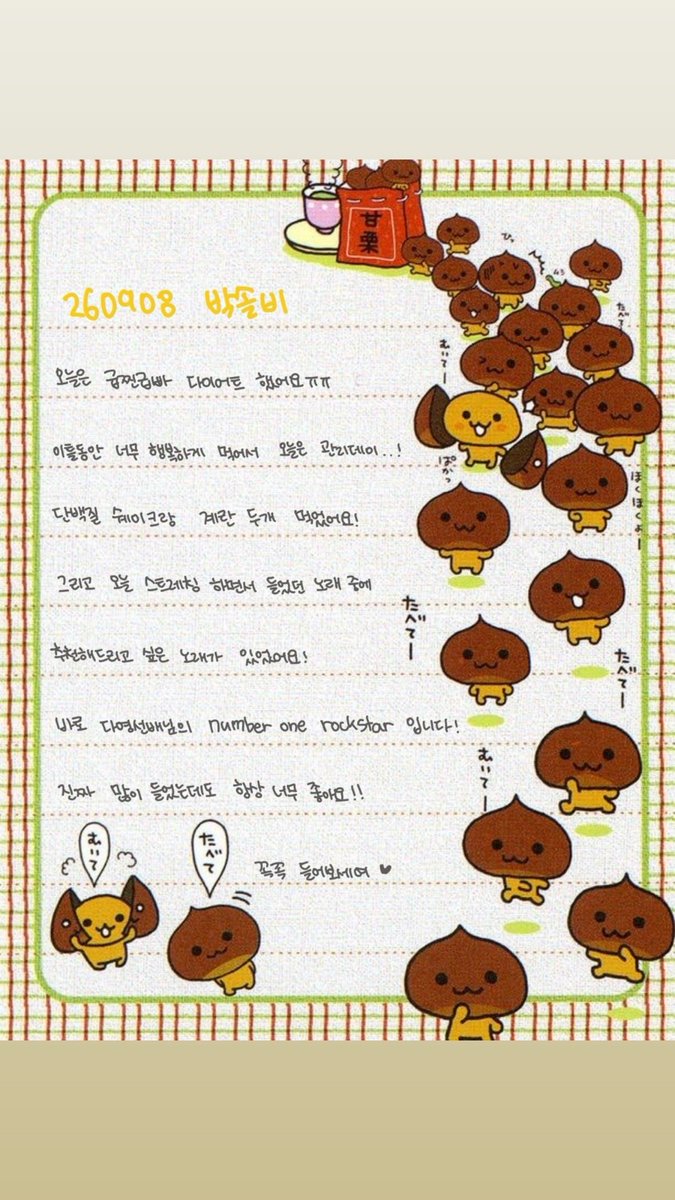 甘栗
260908 박솔비
오늘은 급찐급빠 다이어트 했어요ㅠㅠ
이틀동안 너무 행복하게 먹어서 오늘은 관리데이..!
단백질 쉐이크랑 계란 두개 먹었어요!
그리고 오늘 스트레칭 하면서 들었던 노래 중에
추천해드리고 싶은 노래가 있었어요!
바로 다영선배님의 number one rockstar 입니다!
진짜 많이 들었는데도 항상 너무 좋아요!!
꼭꼭 들어보세여 ♥
むいてー
ぱかっ
たべてー
たべてー
むいてー
むいて
たべて